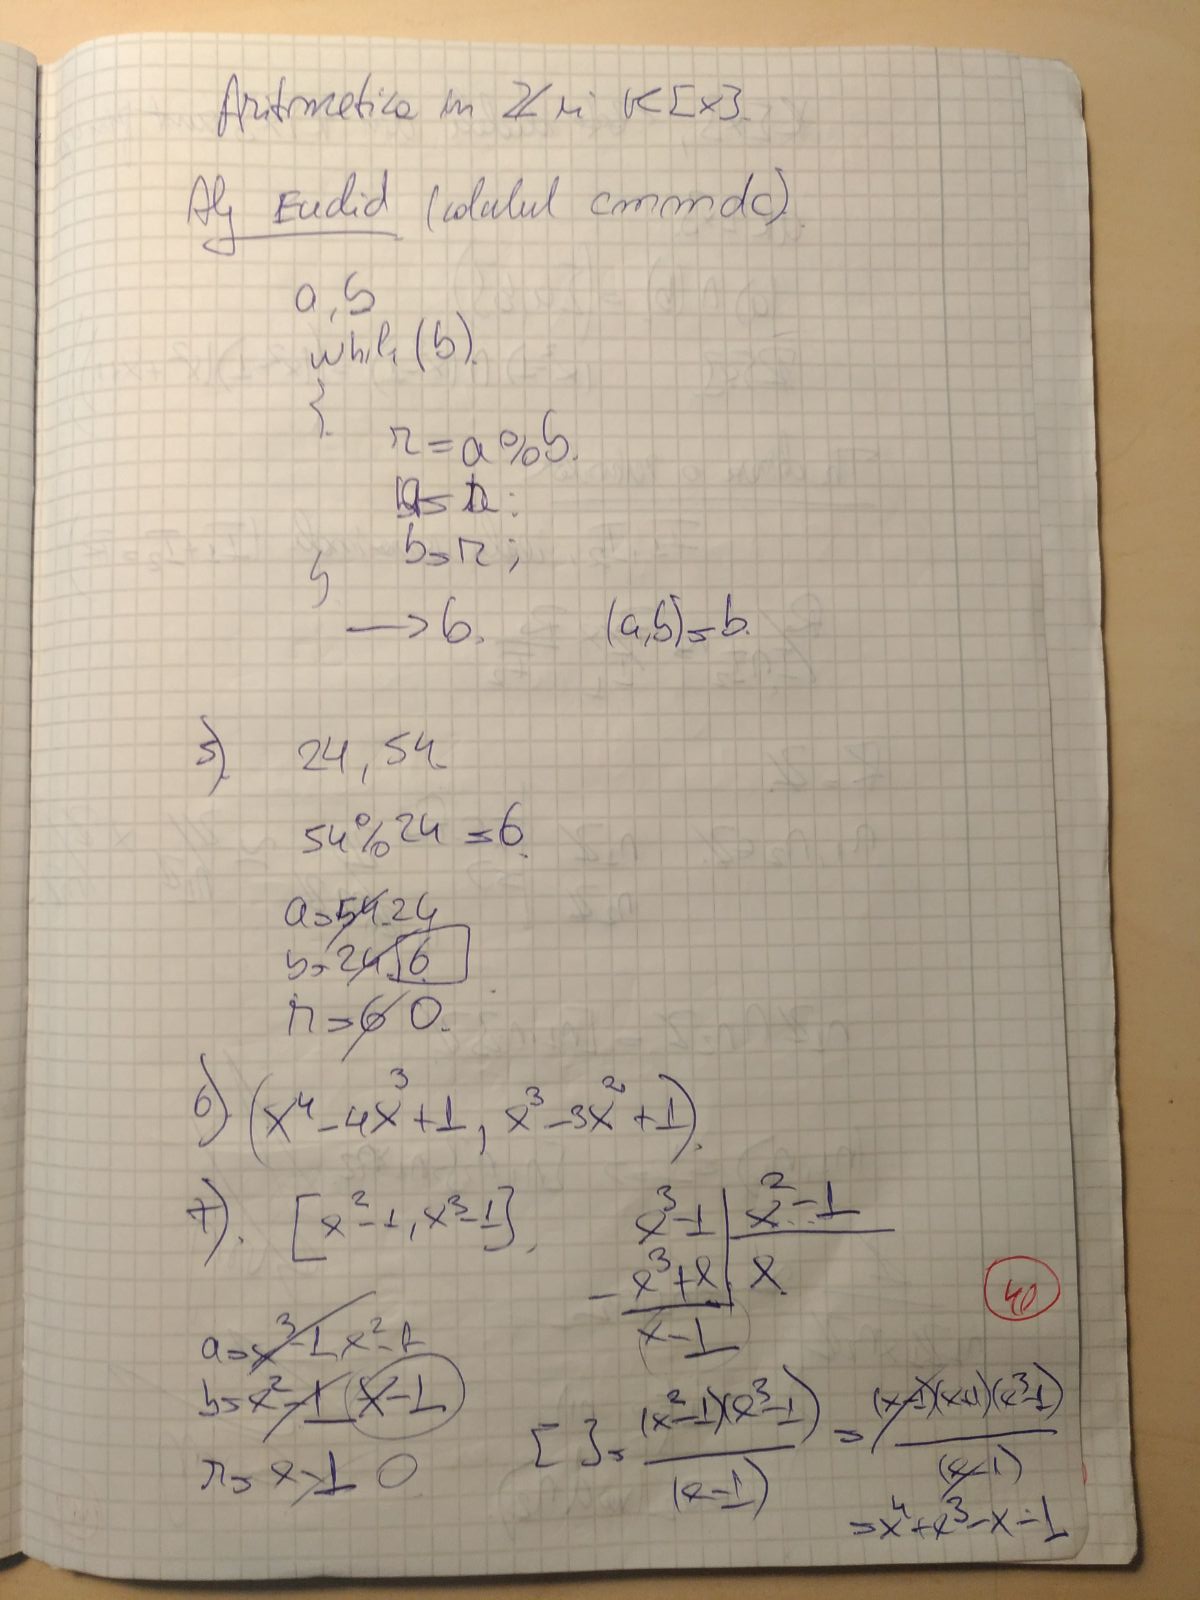 Aritmetica in ℤ și K[x].
Alg Euclid (calculul cmmdc)
a, b
while (b)
{
r = a % b.
a = b;
b = r;
}
→ b. (a,b) = b.
5) 24, 54
54 % 24 = 6
a = 54 24
b = 24 6
r = 6 0.
6) (x⁴ - 4x³ + 1, x³ - 3x² + 1).
7) [x² - 1, x³ - 1]
x³ - 1 | x² - 1
- x³ + x | x
x - 1
40
a = x³ - 1 x² - 1
b = x² - 1 x - 1
r = x - 1 0
[ ] = (x² - 1)(x³ - 1) / (x - 1) = (x - 1)(x + 1)(x³ - 1) / (x - 1)
= x⁴ + x³ - x - 1